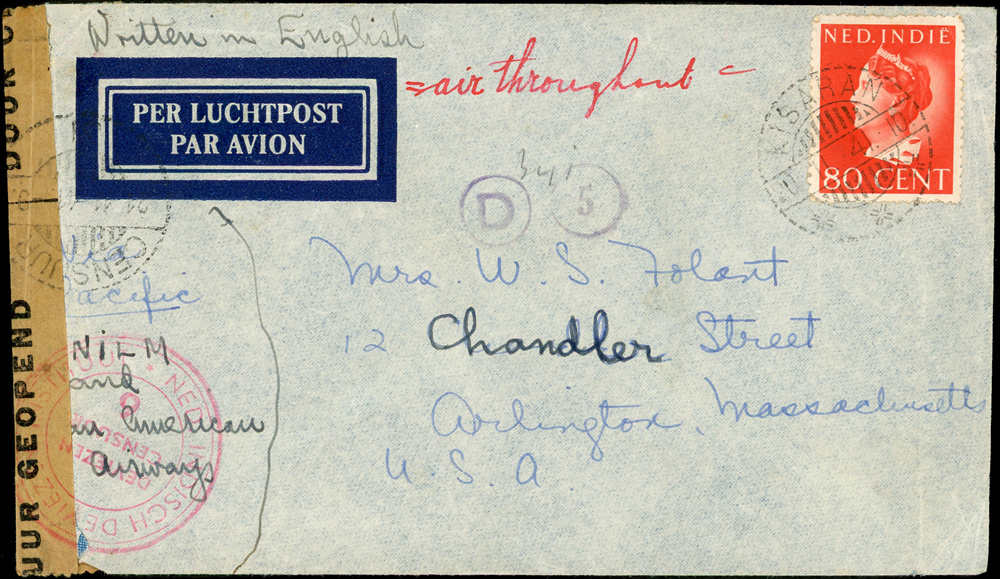 Written in English
PER LUCHTPOST
PAR AVION
=air throughout
NED. INDIË
80 CENT
KISARAN
D
5
CENSUUR
Via
Pacific
Mrs. W. S. Folant
12 Chandler Street
Arlington, Massachusetts
U. S. A.
KNILM
and
American
Airways
NED. INDISCH DEVIEZEN
DEVIEZEN
CENSUUR
DOOR
UUR GEOPEND